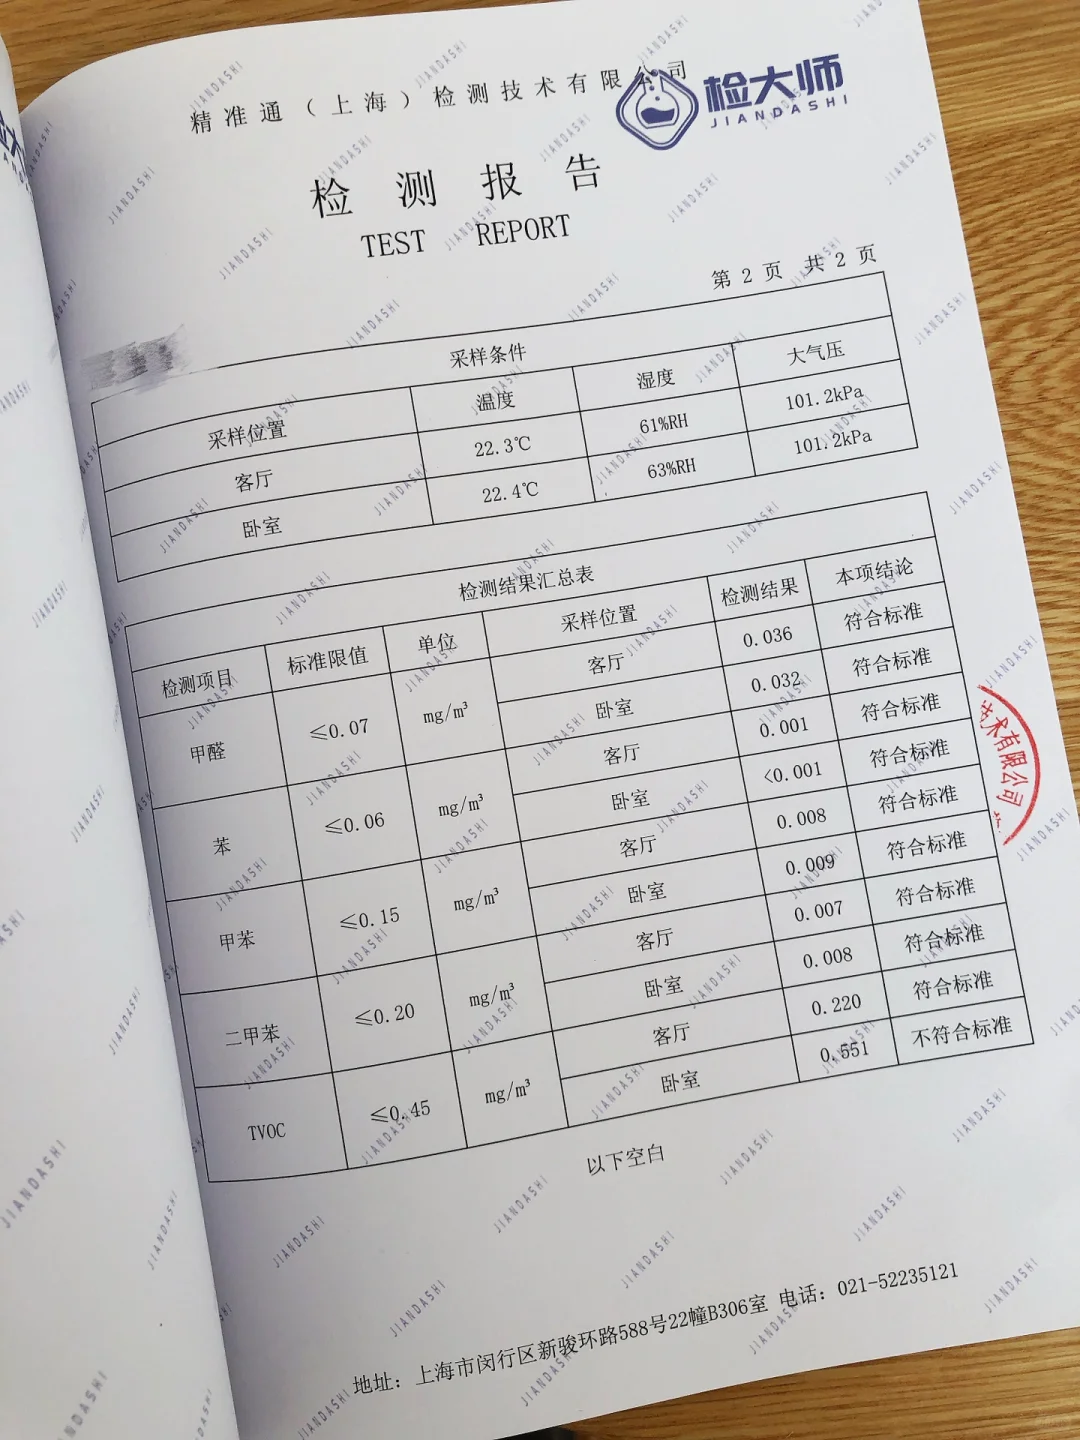 精准通（上海）检测技术有限公司
检大师
JIANDASHI
检测报告
TEST REPORT
第 2 页 共 2 页
采样条件
采样位置 温度 湿度 大气压
客厅 22.3℃ 61%RH 101.2kPa
卧室 22.4℃ 63%RH 101.2kPa
检测结果汇总表
检测项目 标准限值 单位 采样位置 检测结果 本项结论
甲醛 ≤0.07 mg/m³ 客厅 0.036 符合标准
卧室 0.032 符合标准
苯 ≤0.06 mg/m³ 客厅 0.001 符合标准
卧室 <0.001 符合标准
甲苯 ≤0.15 mg/m³ 客厅 0.008 符合标准
卧室 0.009 符合标准
二甲苯 ≤0.20 mg/m³ 客厅 0.007 符合标准
卧室 0.008 符合标准
TVOC ≤0.45 mg/m³ 客厅 0.220 符合标准
卧室 0.551 不符合标准
以下空白
技术有限公司
地址：上海市闵行区新骏环路588号22幢B306室 电话：021-52235121